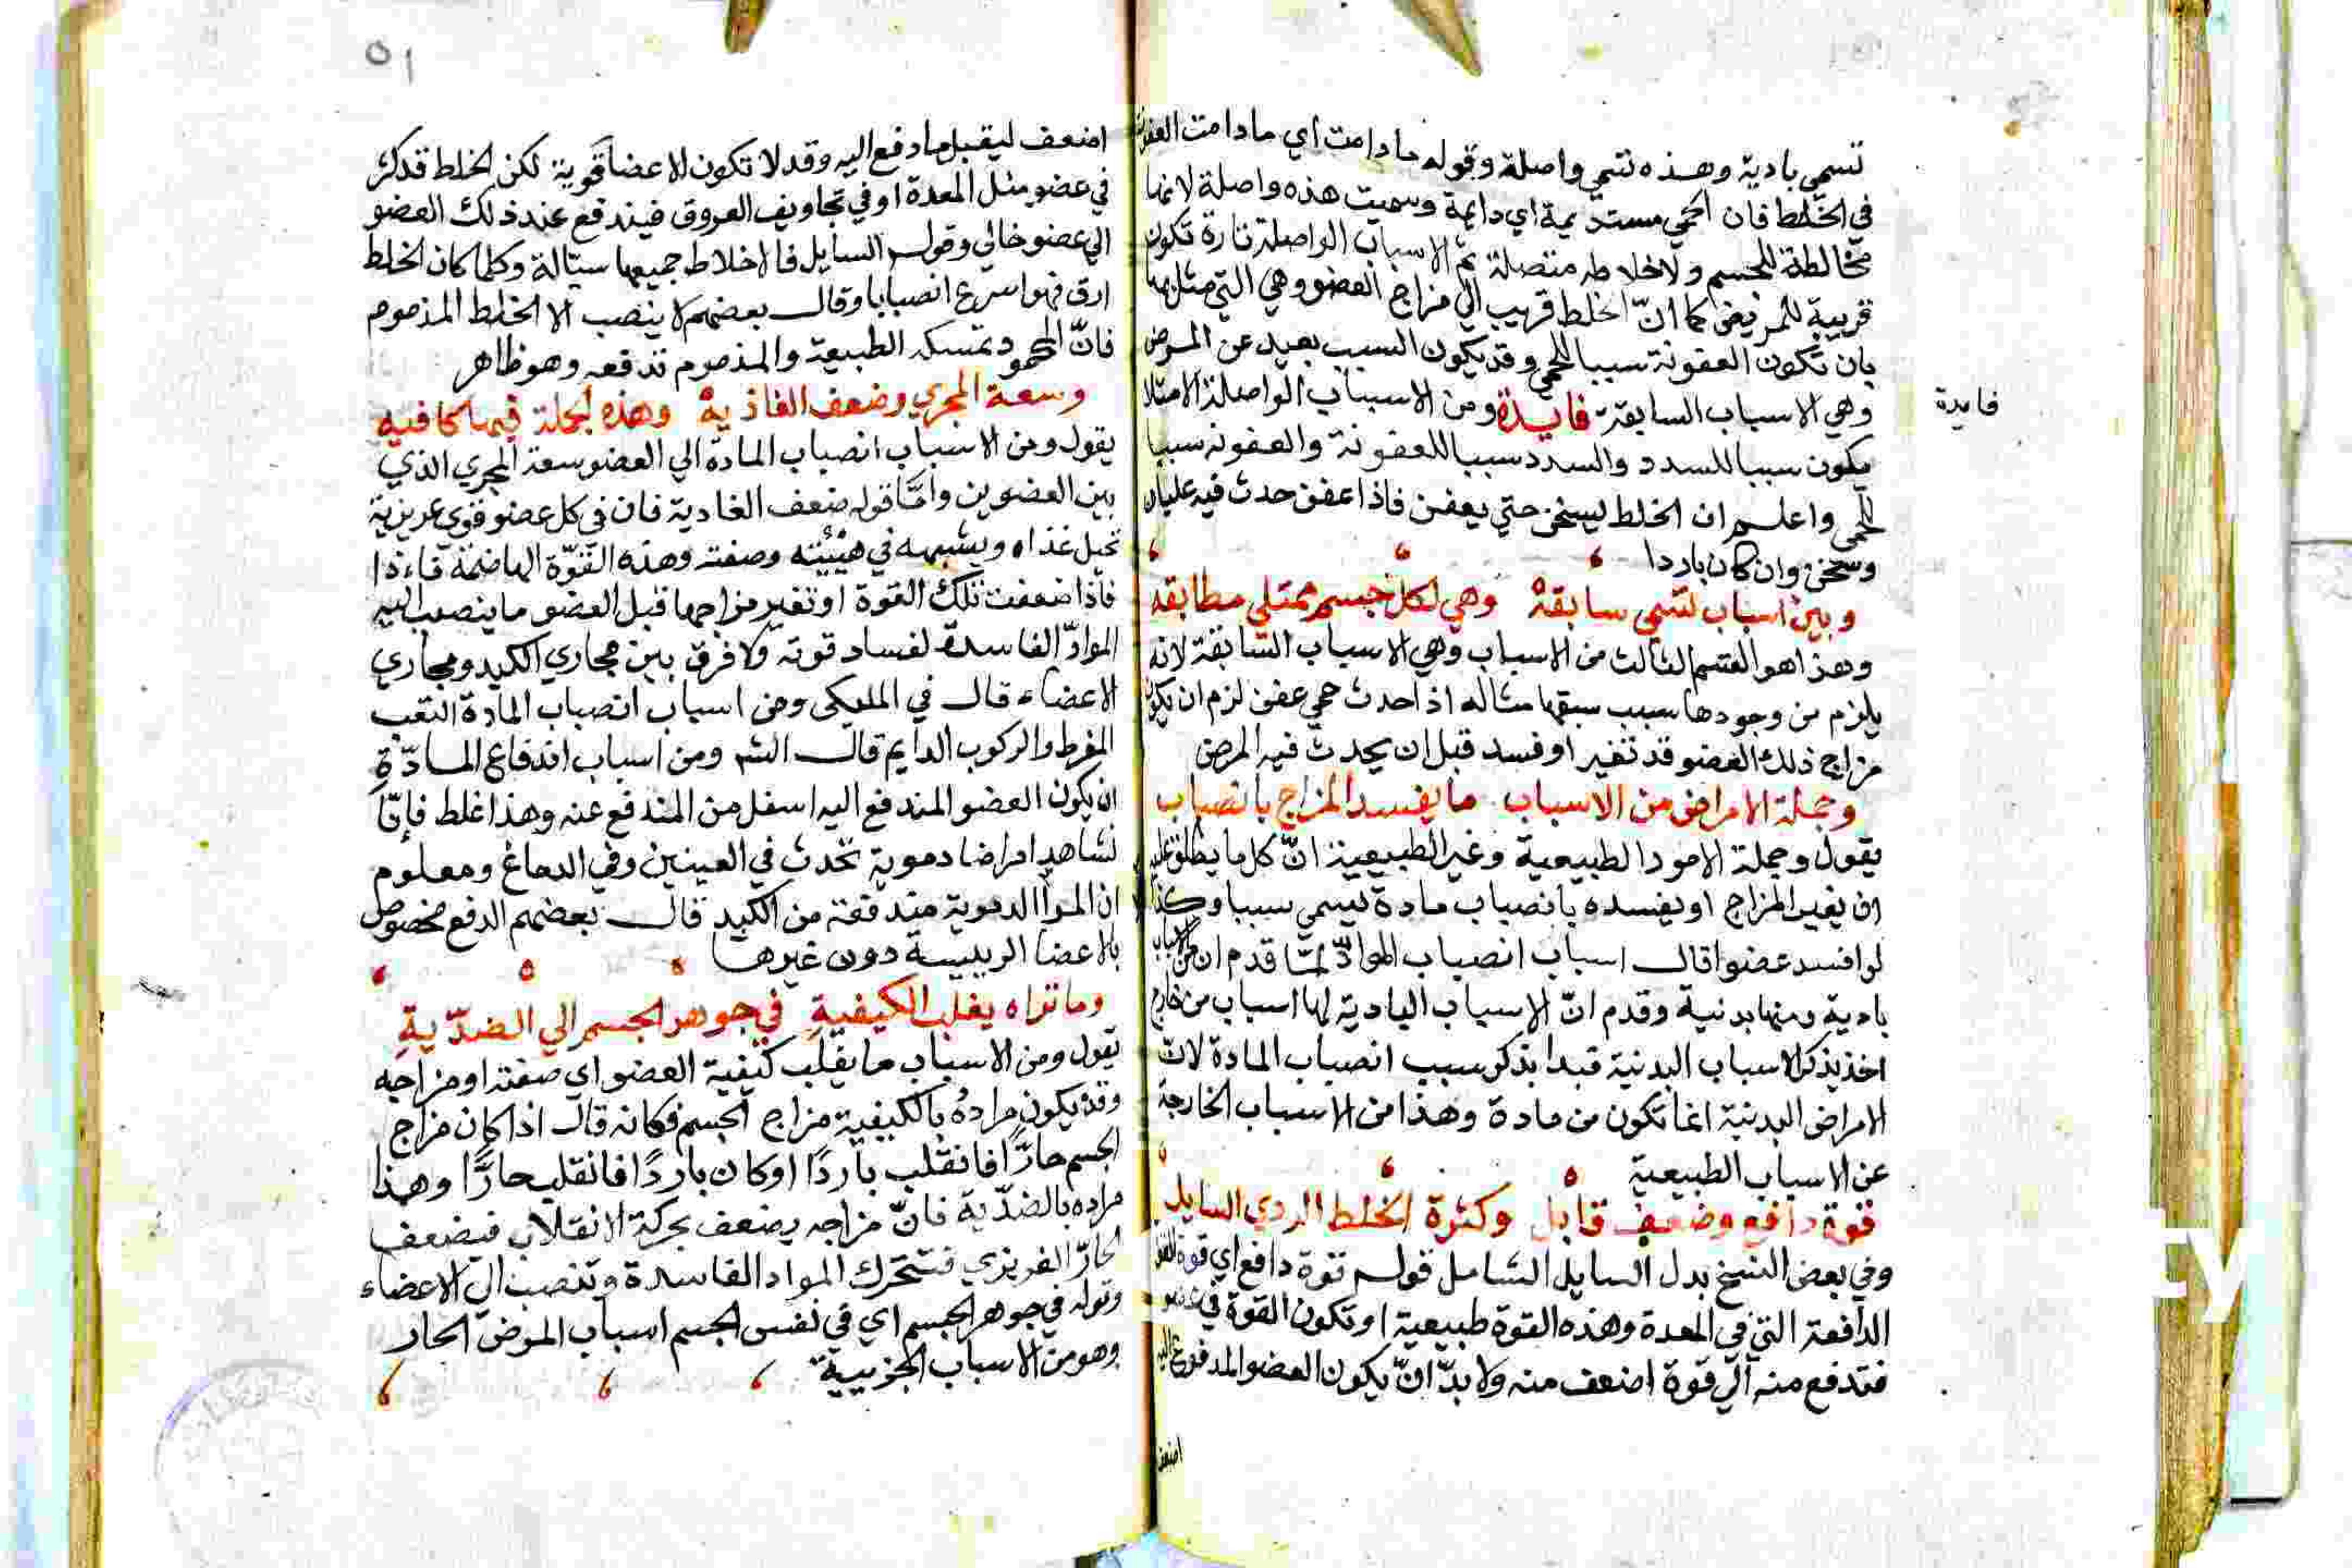 تسمي بادية وهذه تسمي واصلة وقوله مادامت اي مادامت العفونة
في الخلط فان الحمي مستديمة اي دايمة وسميت هذه واصلة لانها
مخالطة للجسم ولاخلاطه متصلة ثم الاسباب الواصلة تارة تكون
قريبة للمريض كما انّ الخلط قريب الي مزاج العضو وهي التي مثل بها
بان تكون العفونة سببا للحمي وقد يكون السبب بعيد عن المرض
وهي الاسباب السابقة فايدة ومن الاسباب الواصلة الامتلا
فايدة
يكون سببا للسدد والسدد سببا للعفونة والعفونة سببا
للحمي واعلم ان الخلط ليسخن حتي يعفن فاذا عفن حدث فيه غليان
وسخن وان كان باردا
وبين اسباب تسمي سابقة وهي لكل جسم ممتلي مطابقة
وهذا هو القسم الثالث من الاسباب وهي الاسباب السابقة لانه
يلزم من وجودها سبب سبقها مثاله اذا حدث حمي عفن لزم ان يكون
مزاج ذلك العضو قد تغير او فسد قبل ان يحدث فيه المرض
وجملة الامراض من الاسباب ما يفسد المزاج بانصباب
يقول وجملة الامور الطبيعية وغير الطبيعية انّ كل ما يطلق عليه
ان يغير المزاج او يفسده بانصباب مادة يسمي سببا وكذا
لو افسد عضوا قال اسباب انصباب الموادّ لمّا قدم ان من الاسباب
بادية ومنها بدنية وقدم انّ الاسباب البادية لها اسباب من خارج
اخذ يذكر الاسباب البدنية فبدا بذكر سبب انصباب المادة لان
الامراض البدنية انما تكون من مادة وهذا من الاسباب الخارجة
عن الاسباب الطبيعية
قوة دافع وضعف قابل وكثرة الخلط الردي السايل
وفي بعض النسخ بدل السايل الشامل قوله قوة دافع اي قوة القوة
الدافعة التي في المعدة وهذه القوة طبيعية او تكون القوة في عضو
فتدفع منه الي قوة اضعف منه ولا بدّ انّ يكون العضو المدفوع اليه
اضعف
٥١
اضعف ليقبل ما دفع اليه وقد لا تكون الاعضا قوية لكن الخلط قد كثر
في عضو مثل المعدة او في تجاويف العروق فيندفع عند ذلك العضو
الي عضو خالي وقول السايل فالاخلاط جميعها سيّالة وكلما كان الخلط
ارق فهو اسرع انصبابا وقال بعضهم لا ينصب الا الخلط المذموم
فانّ المحمود تمسكه الطبيعة والمذموم تدفعه وهو ظاهر
وسعة المجري وضعف الغاذية وهذه لجملة فيها كافيه
يقول ومن الاسباب انصباب المادة الي العضو سعة المجري الذي
بين العضوين وامّا قوله ضعف الغادية فان في كل عضو قوي غريزية
تحيل غذاه ويشبهه في هيئته وصفته وهذه القوّة الهاضمة فاءذا
فاذا ضعفت تلك القوة او تغير مزاجها قبل العضو ما ينصب اليه
الموادّ الفاسدة لفساد قوته ولا فرق بين مجاري الكبد ومجاري
الاعضاء قال في الملكي ومن اسباب انصباب المادة التعب
المفرط والركوب الدايم قال الشم ومن اسباب اندفاع المادّة
ان يكون العضو المندفع اليه اسفل من المندفع عنه وهذا غلط فإنّا
نشاهد امراضا دموية تحدث في العينين وفي الدماغ ومعلوم
ان المرا الدموية مندفعة من الكبد قال بعضهم الدفع مخصوص
بالاعضا الرييسة دون غيرها
وما تراه يغلب الكيفيةِ في جوهر الجسم الي الضدّيةِ
يقول ومن الاسباب ما يقلب كيفية العضو اي صفته او مزاجه
وقد يكون مراده بالكيفية مزاج الجسم فكانه قال اذا كان مزاج
الجسم حارًّا فانقلب باردًا او كان باردًا فانقلب حارًّا وهذا
مراده بالضدّية فانّ مزاجه يضعف بحركة الانقلاب فيضعف
الحارّ الغريزي فتتحرك المواد الفاسدة وتنصب الي الاعضاء
وقوله في جوهر الجسم اي في نفس الجسم اسباب المرض الحار
وهو من الاسباب الجزيية